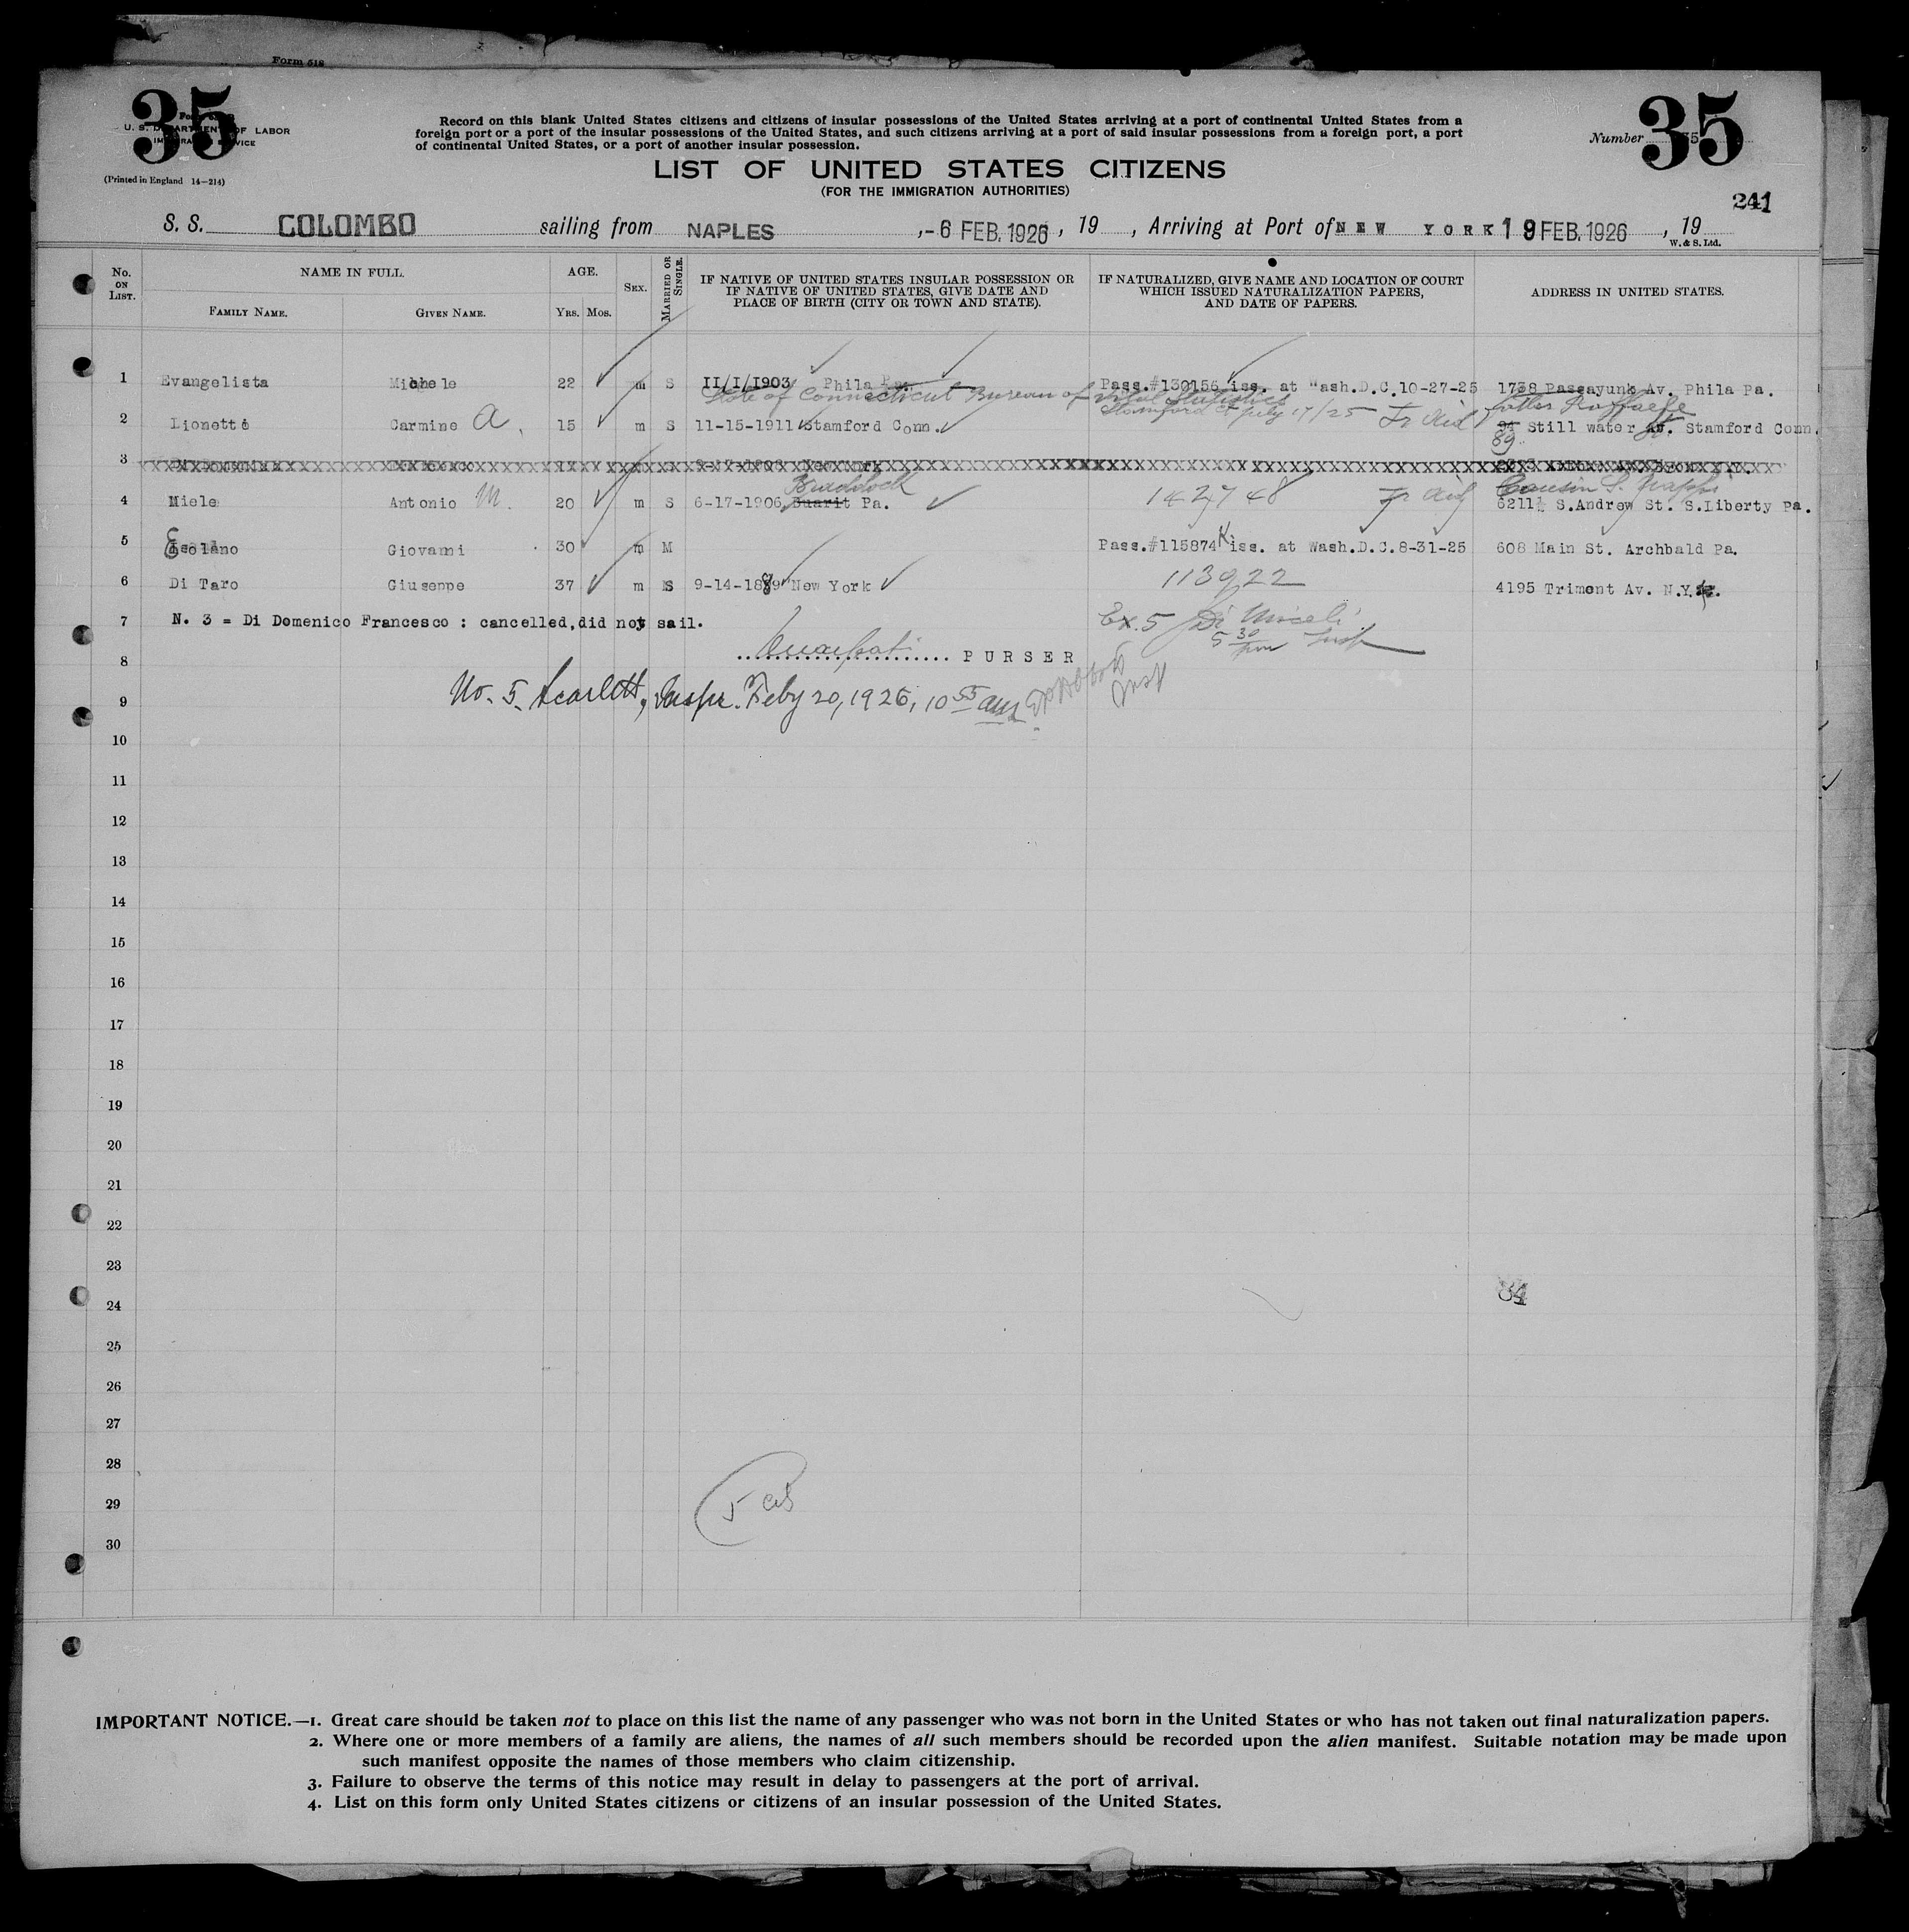 Form 618
35
U. S. DEPARTMENT OF LABOR
(Printed in England 14—214)
Record on this blank United States citizens and citizens of insular possessions of the United States arriving at a port of continental United States from a
foreign port or a port of the insular possessions of the United States, and such citizens arriving at a port of said insular possessions from a foreign port, a port
of continental United States, or a port of another insular possession.
LIST OF UNITED STATES CITIZENS
(FOR THE IMMIGRATION AUTHORITIES)
Number 35
241
S. S. COLOMBO sailing from NAPLES ,-6 FEB. 1926, 19 , Arriving at Port of NEW YORK 19 FEB. 1926 , 19
W. & S. Ltd.
No. ON LIST.
NAME IN FULL.
FAMILY NAME.
GIVEN NAME.
AGE.
YRS. MOS.
SEX.
MARRIED OR SINGLE.
IF NATIVE OF UNITED STATES INSULAR POSSESSION OR
IF NATIVE OF UNITED STATES, GIVE DATE AND
PLACE OF BIRTH (CITY OR TOWN AND STATE).
IF NATURALIZED, GIVE NAME AND LOCATION OF COURT
WHICH ISSUED NATURALIZATION PAPERS,
AND DATE OF PAPERS.
ADDRESS IN UNITED STATES.
1 Evangelista Michele 22 m S II/I/1903 Phila Pa. Pass.#130156 iss. at "ash.D.C.10-27-25 1738 Passayunk Av. Phila Pa.
State of Connecticut Bureau of Vital Statistics
Stamford Ct July 17/25 father Raffaele
2 Lionetti Carmine A. 15 m S 11-15-1911 Stamford Conn. 89 Still water St. Stamford Conn.
3
Braddock Cousin S.
4 Miele Antonio M. 20 m S 6-17-1906 Buarit Pa. 142748 6211½ S.Andrew St. S.Liberty Pa.
5 Esolano Giovanni 30 m M Pass.#115874 iss. at Wash.D.C.8-31-25 608 Main St. Archbald Pa.
6 Di Taro Giuseppe 37 m S 9-14-1889 New York 113922 4195 Trimont Av. N.Y.
7 N. 3 = Di Domenico Francesco : cancelled,did not sail. Ex. 5 Di Miceli
5 30 pm Insp
8 PURSER
9 No. 5. Scarlett, Inspr. Feby 20, 1926, 10 55 am
10
11
12
13
14
15
16
17
18
19
20
21
22
23
24 34
25
26
27
28
29 5 cit
30
IMPORTANT NOTICE.—1. Great care should be taken not to place on this list the name of any passenger who was not born in the United States or who has not taken out final naturalization papers.
2. Where one or more members of a family are aliens, the names of all such members should be recorded upon the alien manifest. Suitable notation may be made upon
such manifest opposite the names of those members who claim citizenship.
3. Failure to observe the terms of this notice may result in delay to passengers at the port of arrival.
4. List on this form only United States citizens or citizens of an insular possession of the United States.